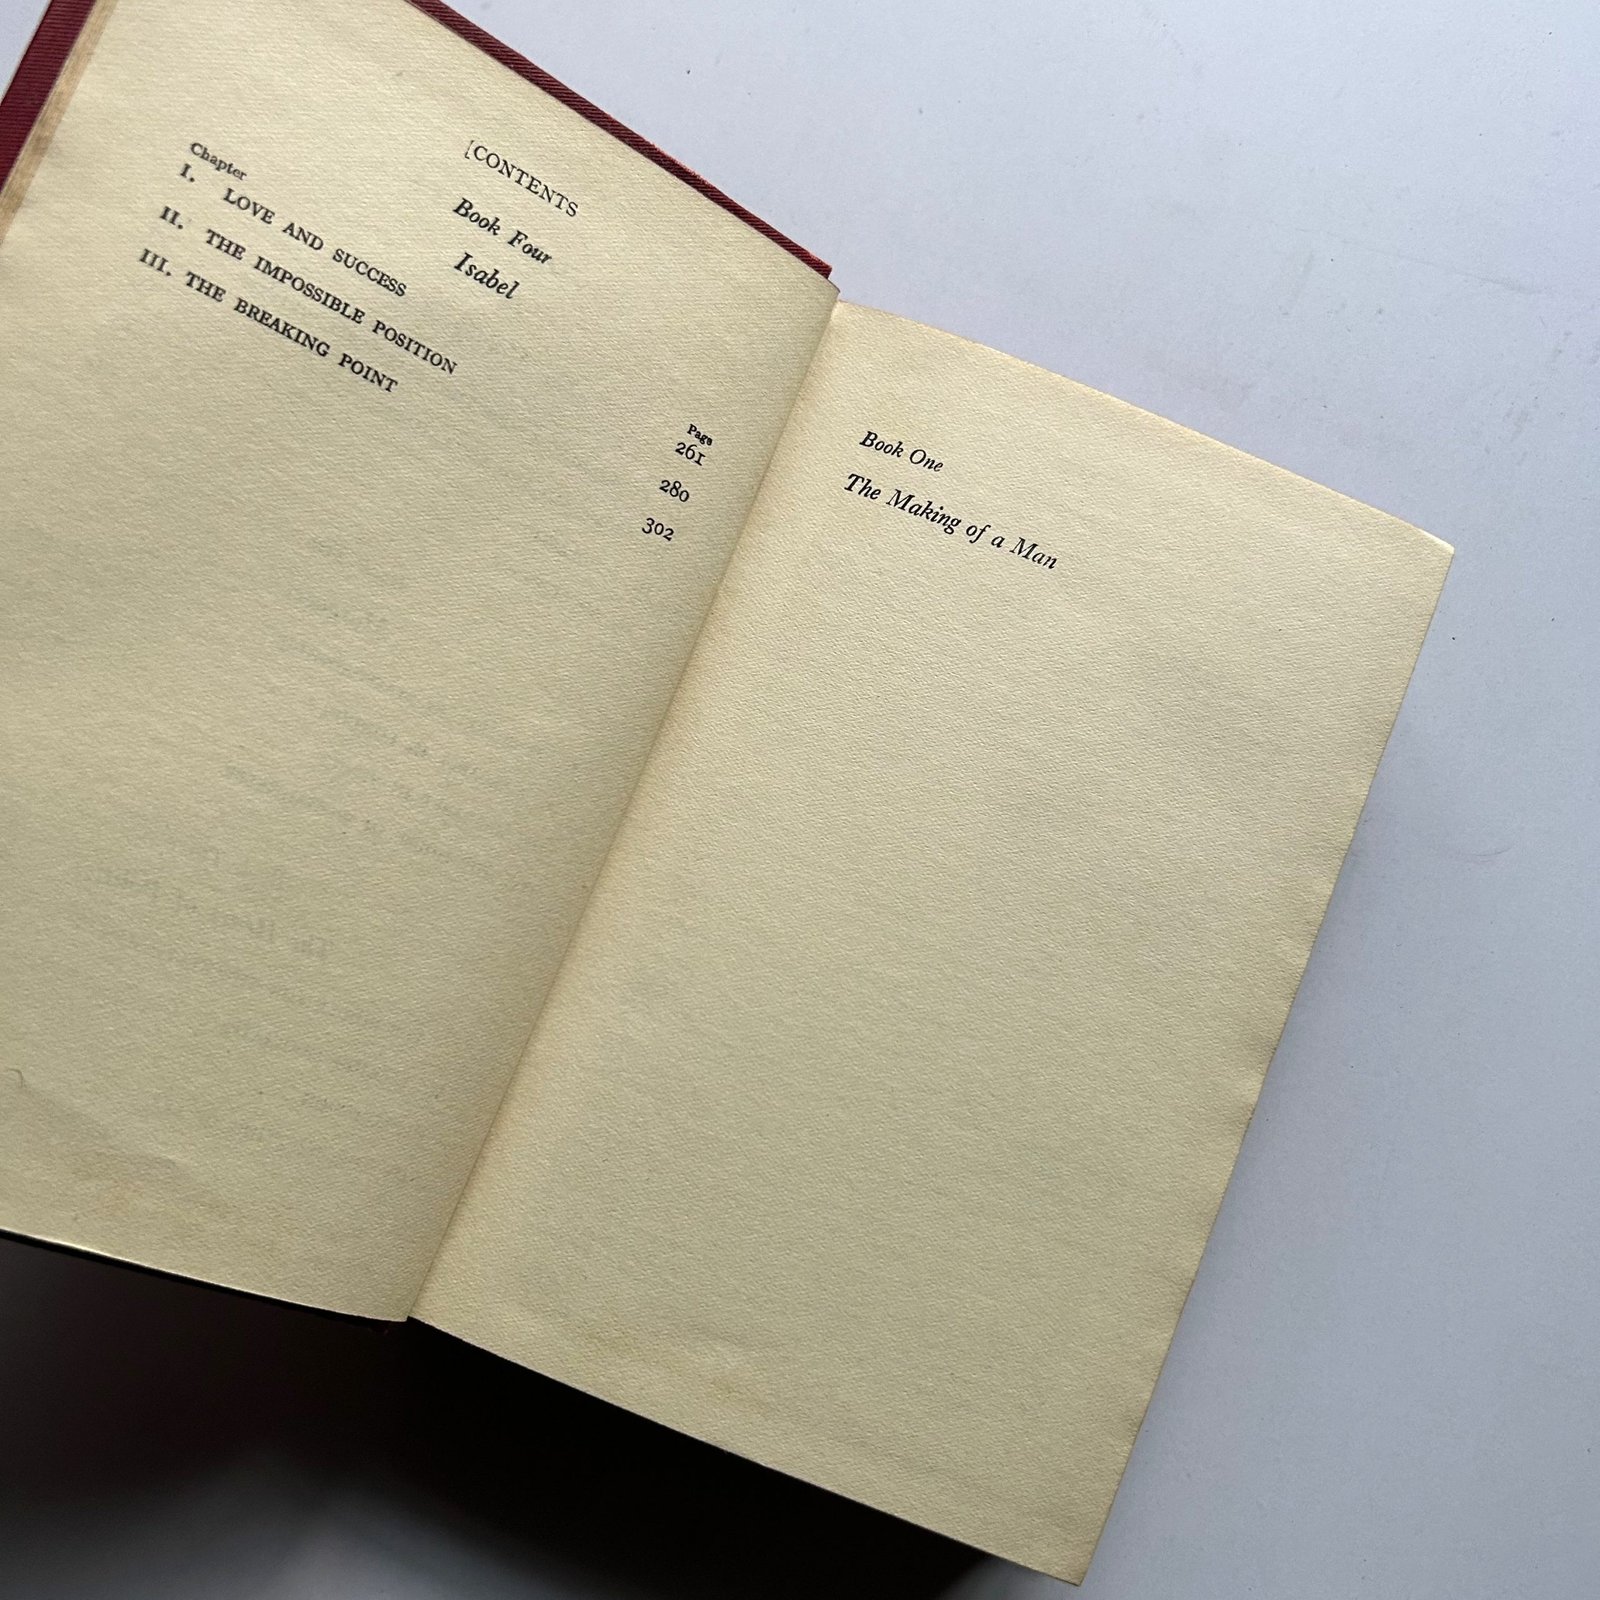 [CONTENTS
Book Four
Isabel
Chapter Page
I. LOVE AND SUCCESS 261
II. THE IMPOSSIBLE POSITION 280
III. THE BREAKING POINT 302
Book One
The Making of a Man